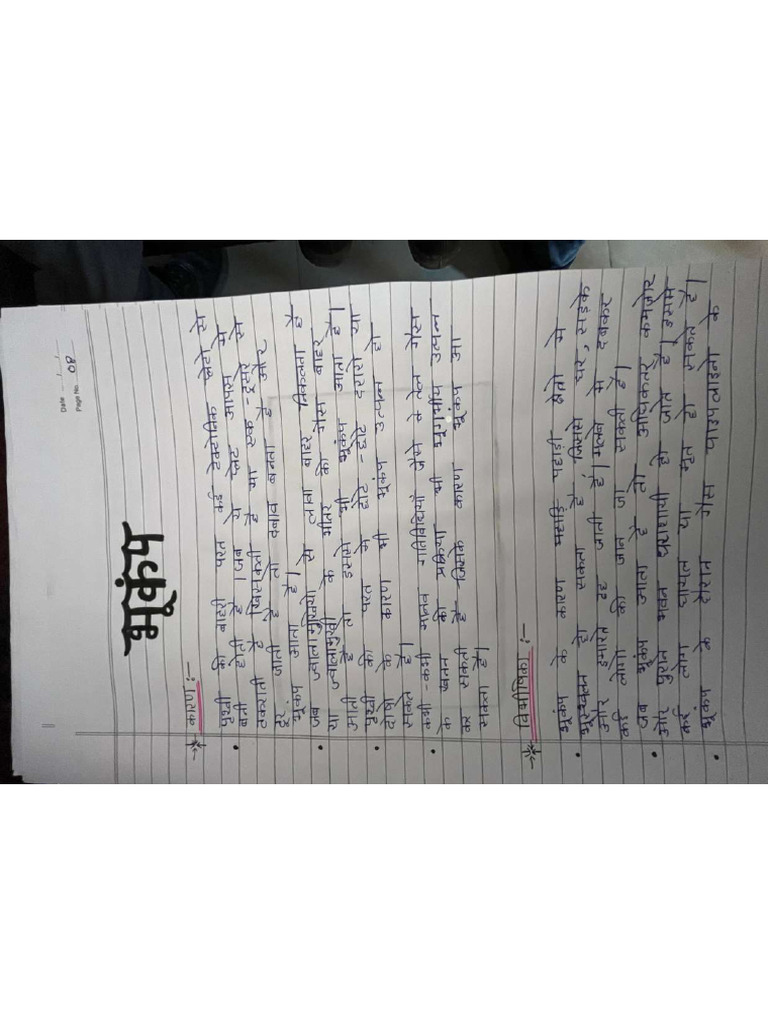 Date __/__/__
Page No. 08
भूकंप
कारण :-
पृथ्वी की बाहरी परत कई टेक्टोनिक प्लेटो से
बनी होती है। जब ये प्लेट आपस मे
टकराती है खिसकती है या एक-दूसरे से
दूर जाती है तो दबाव बनता है और
भूकंप आता है।
जब ज्वालामुखियो से लावा बाहर निकलता है
या ज्वालामुखी के भीतर की गैस बाहर
आती है तो इससे भी भूकंप आता है।
पृथ्वी की परत मे छोटे-छोटे दरारो या
दोषो के कारण भी भूकंप उत्पन्न हो
सकते है।
कभी-कभी मानव गतिविधियाँ जैसे के तेल गैस
के खनन की प्रक्रिया भी भूगर्भीय उत्पन्न
कर सकती है जिसके कारण भूकंप आ
सकता है।
विभीषिका :-
भूकंप के कारण पहाड़ि पहाड़ी क्षेत्रो मे
भूस्खलन हो सकता है जिससे घरे, सड़के
और इमारते ढह जाती है। मलबे मे दबकर
कई लोगो की जान जा सकती है।
जब भूकंप आता है तो अधिकतर कमज़ोर
ओर पुराने भवन धराशायी हो जाते है। इससे
कई लोग घायल या मृत हो सकते है।
भूकंप के दौरान गैस पाइपलाइनो के